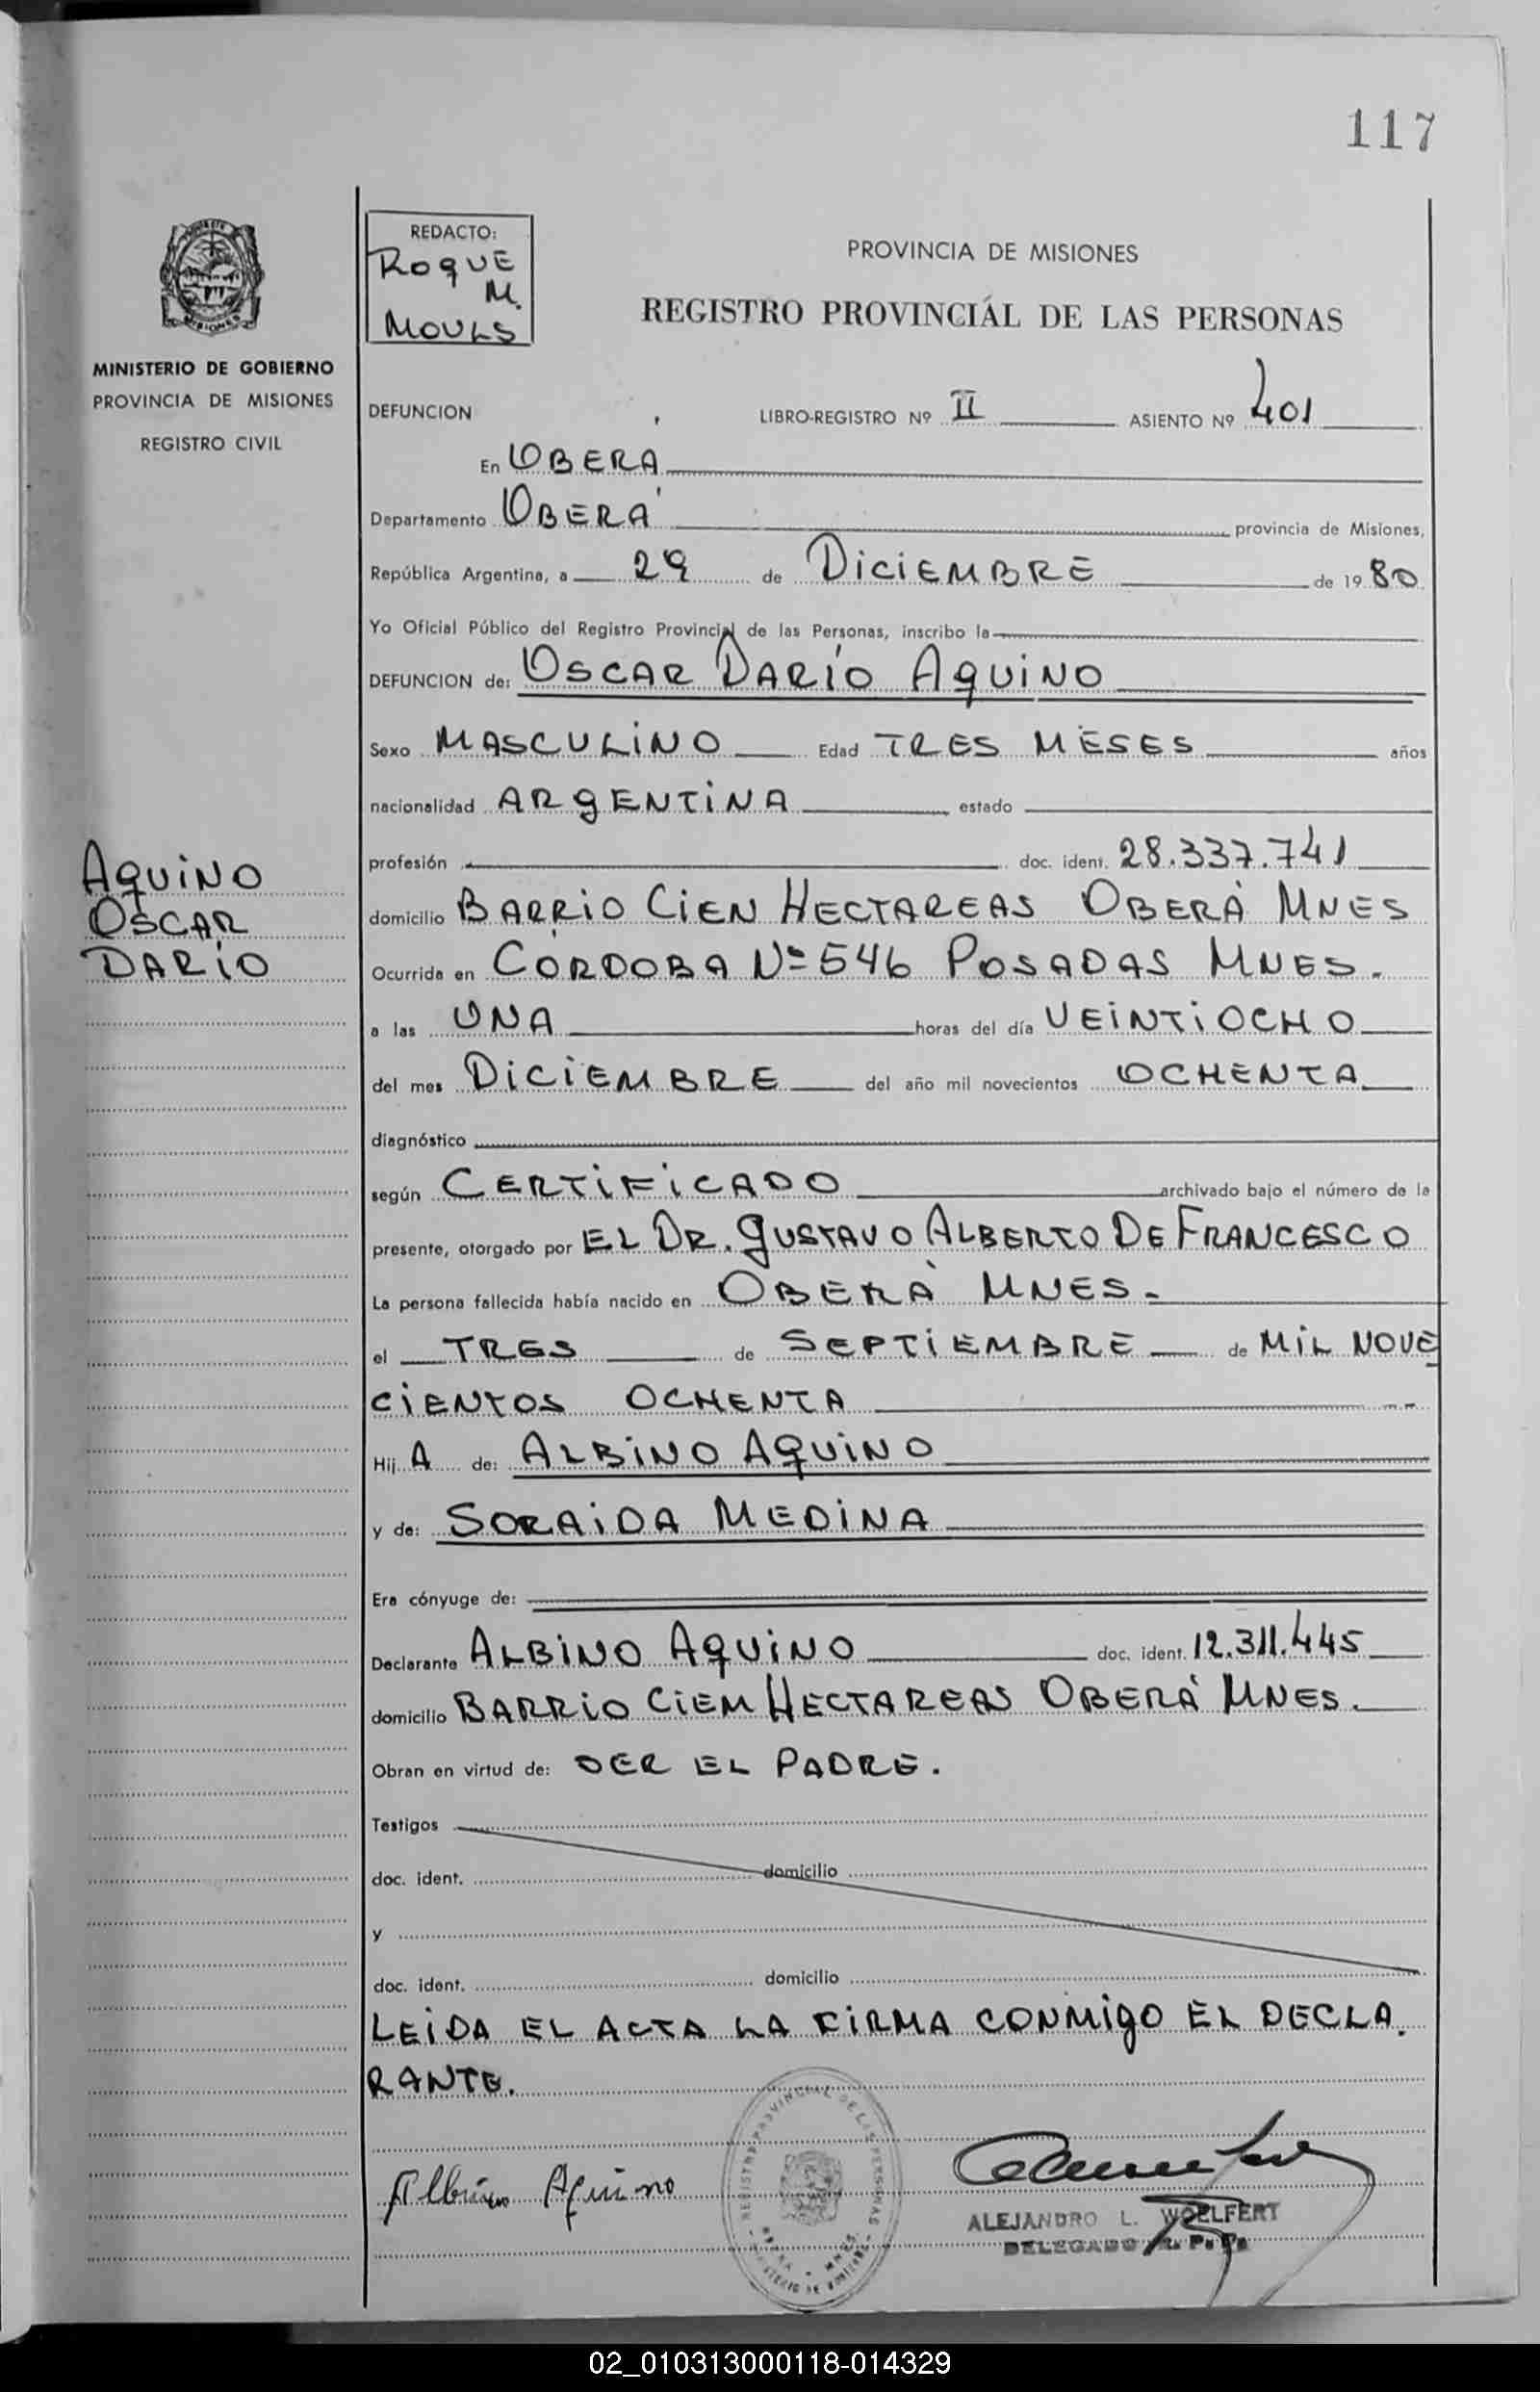 117
MINISTERIO DE GOBIERNO
PROVINCIA DE MISIONES
REGISTRO CIVIL
AQUINO
OSCAR
DARÍO
REDACTO:
ROQUE
M.
MOULS
PROVINCIA DE MISIONES
REGISTRO PROVINCIAL DE LAS PERSONAS
DEFUNCION LIBRO-REGISTRO Nº II ASIENTO Nº 401
En OBERA
Departamento OBERÁ provincia de Misiones,
República Argentina, a 29 de DICIEMBRE de 1980
Yo Oficial Público del Registro Provincial de las Personas, inscribo la
DEFUNCION de: OSCAR DARÍO AQUINO
Sexo MASCULINO Edad TRES MESES años
nacionalidad ARGENTINA estado
profesión doc. ident. 28.337.741
domicilio BARRIO CIEN HECTAREAS OBERÁ MNES
Ocurrida en CORDOBA Nº 546 POSADAS MNES.
a las UNA horas del día VEINTIOCHO
del mes DICIEMBRE del año mil novecientos OCHENTA
diagnóstico
según CERTIFICADO archivado bajo el número de la
presente, otorgado por EL DR. GUSTAVO ALBERTO DE FRANCESCO
La persona fallecida había nacido en OBERÁ MNES.
el TRES de SEPTIEMBRE de MIL NOVE
CIENTOS OCHENTA
Hij A de: ALBINO AQUINO
y de: SORAIDA MEDINA
Era cónyuge de:
Declarante ALBINO AQUINO doc. ident. 12.311.445
domicilio BARRIO CIEM HECTAREAS OBERÁ MNES.
Obran en virtud de: SER EL PADRE.
Testigos
doc. ident. domicilio
y
doc. ident. domicilio
LEIDA EL ACTA LA FIRMA CONMIGO EL DECLA.
RANTE.
Albino Aquino
REGISTRO PROVINCIAL DE LAS PERSONAS
ALEJANDRO L. WOELFERT
DELEGADO R. P. P.
02_010313000118-014329